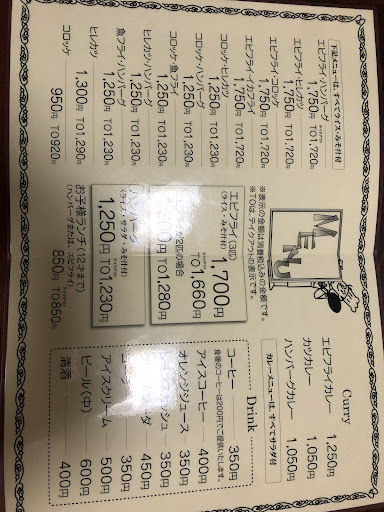 MENU
※表示の金額は消費税込みの金額です。
※TOは、テイクアウトの表示です。
下記メニューは、すべてライス・みそ汁付
エビフライ・ハンバーグ 1,750円 TO1,720円
エビフライ・ヒレカツ 1,750円 TO1,720円
エビフライ・コロッケ 1,750円 TO1,720円
エビフライ・イカフライ 1,750円 TO1,720円
コロッケ・ヒレカツ 1,250円 TO1,230円
コロッケ・ハンバーグ 1,250円 TO1,230円
コロッケ・魚フライ 1,250円 TO1,230円
ヒレカツ・ハンバーグ 1,250円 TO1,230円
魚フライ・ハンバーグ 1,250円 TO1,230円
ヒレカツ 1,300円 TO1,290円
コロッケ 950円 TO920円
エビフライ(3匹) 1,700円
(ライス・みそ汁付) TO1,660円
が2匹の場合
300円 TO1,280円
ハンバーグ 1,250円
(ライス・サラダ・みそ汁付) TO1,230円
お子様ランチ(12才まで) 850円 TO850円
(ハンバーグまたは、エビフライ)
Curry
エビフライカレー 1,250円
カツカレー 1,050円
ハンバーグカレー 1,050円
カレーメニューは、すべてサラダ付
Drink
コーヒー 350円
食後のコーヒーは200円でご提供いたします。
アイスコーヒー 400円
オレンジジュース 350円
350円
450円
350円
アイスクリーム 500円
ビール(中) 600円
清酒 400円